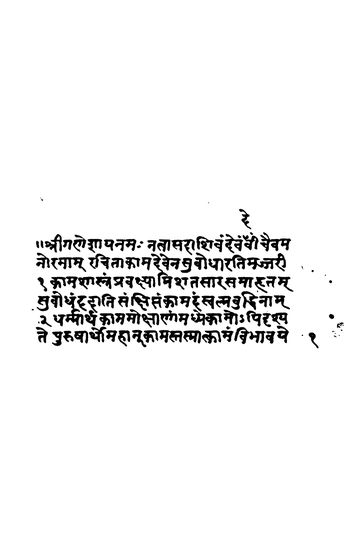 दे
॥श्रीगणेशायनमः नत्वासदाशिवंदेवं चैवम
नोरमाम् रचिताकामदेवेनसुबोधारतिमञ्जरी
१ कामशास्त्रंप्रवक्ष्यामिशतसारसमाहृतम्
सुबोधंददातिसंक्षिप्तंकामदंस्वल्पबुद्धिनाम्
२ धर्मार्थकाममोक्षाणांमध्येकामोऽपिदृश्य
ते पुरुषार्थोमहान्कामस्तस्मात्कामंविभावये १